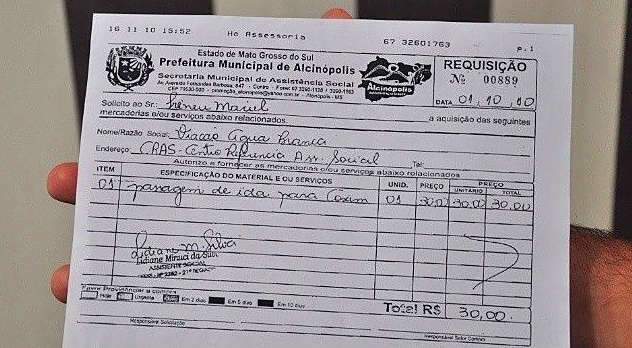 16 11 10 15:52 Ho Assessoria 67 32601763 p.1
Estado de Mato Grosso do Sul
Prefeitura Municipal de Alcinópolis
Secretaria Municipal de Assistência Social
Av. Averaldo Fernandes Barbosa, 847 - Centro - Fone: 67 3260-1138 / 3260-1163
CEP 79530-000 - - Alcinópolis - MS
Alcinópolis
REQUISIÇÃO
Nº 00889
DATA 01, 10, 10
Solicito ao Sr.: a aquisição das seguintes
mercadorias e/ou serviços abaixo relacionados.
Nome/Razão Social: Viação Água Branca
Endereço: CRAS - Centro Referencia Ass. Social Tel:
Autorizo a fornecer as mercadorias e/ou serviços abaixo relacionados
ITEM ESPECIFICAÇÃO DO MATERIAL E OU SERVIÇOS UNID. PREÇO PREÇO
UNITÁRIO TOTAL
01 passagem de ida para Coxim 01 30,0 30,0 30,00
Lidiane M. Silva
Lidiane Miraci da Silva
ASSISTENTE SOCIAL
21ª REGIÃO
Para Providenciar a compra
Hoje Urgente Em 2 dias Em 5 dias Em 10 dias
Total R$ 30,00.
Responsável Solicitação Responsável Setor Compra